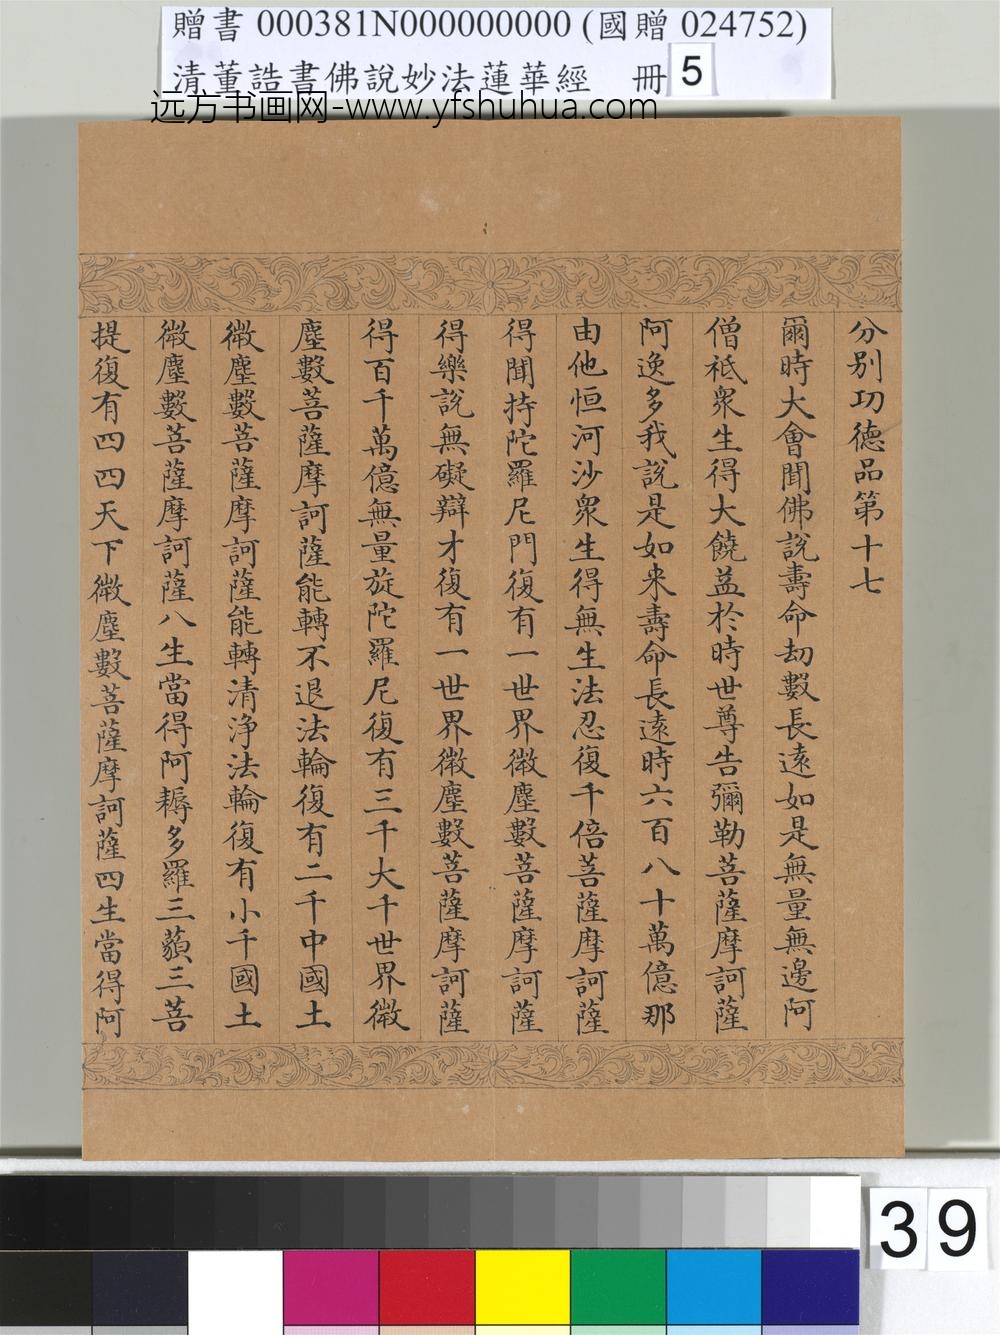 贈書 000381N000000000 (國贈 024752)
清董誥書佛說妙法蓮華經 冊 5
远方书画网-www.yfshuhua.com
分别功德品第十七
爾時大會聞佛說壽命劫數長遠如是無量無邊阿
僧祇衆生得大饒益於時世尊告彌勒菩薩摩訶薩
阿逸多我說是如来壽命長遠時六百八十萬億那
由他恒河沙衆生得無生法忍復千倍菩薩摩訶薩
得聞持陀羅尼門復有一世界微塵數菩薩摩訶薩
得樂說無礙辯才復有一世界微塵數菩薩摩訶薩
得百千萬億無量旋陀羅尼復有三千大千世界微
塵數菩薩摩訶薩能轉不退法輪復有二千中國土
微塵數菩薩摩訶薩能轉清淨法輪復有小千國土
微塵數菩薩摩訶薩八生當得阿耨多羅三藐三菩
提復有四四天下微塵數菩薩摩訶薩四生當得阿
39